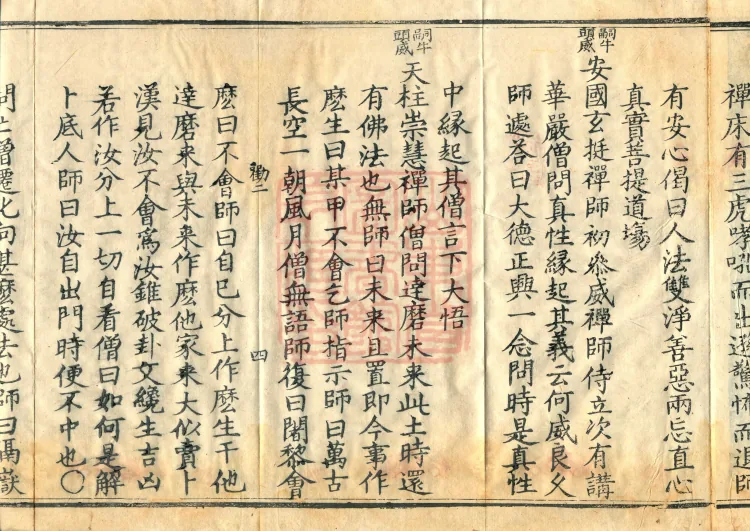 禪床有三虎哮吼而出遷驚怖而退師
有安心偈曰人法雙淨善惡兩忘直心
真實菩提道場
嗣牛
頭威
安國玄挺禪師初叅威禪師侍立次有講
華嚴僧問真性緣起其義云何威良久
師遽召曰大德正興一念問時是真性
中緣起其僧言下大悟
嗣牛
頭威
天柱崇慧禪師僧問達磨未來此土時還
有佛法也無師曰未來且置即今事作
麽生曰某甲不會乞師指示師曰萬古
長空一朝風月僧無語師復曰闍黎會
勷二
四
麽曰不會師曰自己分上作麽生干他
達磨來與未來作麽他家來大似賣卜
漢見汝不會爲汝錐破卦文纔生吉凶
若作汝分上一切自看僧曰如何是解
卜底人師曰汝自出門時便不中也○
問亡僧遷化向甚麽處去也師曰潙嶽